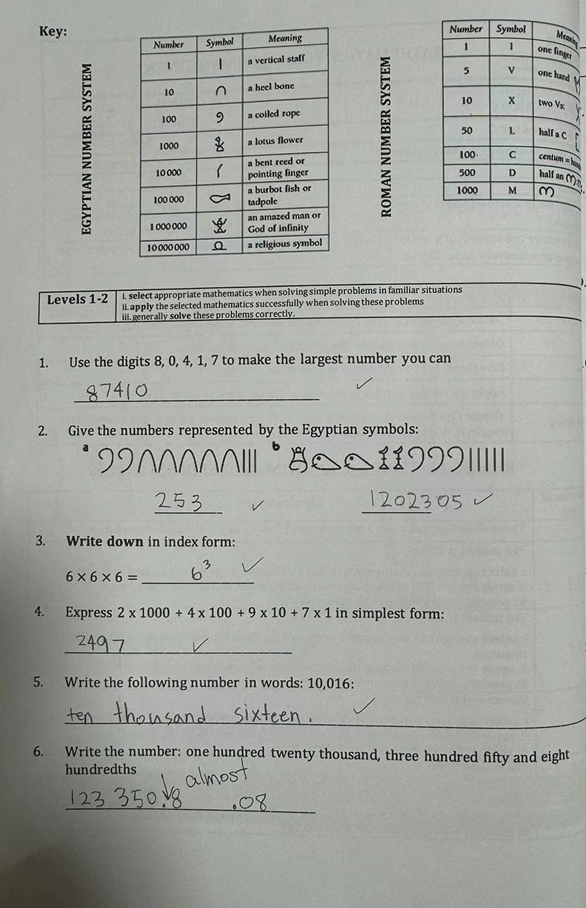 Key:
EGYPTIAN NUMBER SYSTEM
Number Symbol Meaning
1 a vertical staff
10 a heel bone
100 a coiled rope
1000 a lotus flower
10 000 a bent reed or
pointing finger
100 000 a burbot fish or
tadpole
1 000 000 an amazed man or
God of infinity
10 000 000 a religious symbol
ROMAN NUMBER SYSTEM
Number Symbol Meaning
1 I one finger
5 V one hand
10 X two Vs:
50 L half a C
100 C centum =
500 D half an
1000 M
Levels 1-2
i. select appropriate mathematics when solving simple problems in familiar situations
ii. apply the selected mathematics successfully when solving these problems
iii. generally solve these problems correctly.
1. Use the digits 8, 0, 4, 1, 7 to make the largest number you can
87410
2. Give the numbers represented by the Egyptian symbols:
a b
253 1202305
3. Write down in index form:
6 × 6 × 6 = 6³
4. Express 2 x 1000 + 4 x 100 + 9 x 10 + 7 x 1 in simplest form:
2497
5. Write the following number in words: 10,016:
ten thousand sixteen.
6. Write the number: one hundred twenty thousand, three hundred fifty and eight
hundredths
almost
123 350.8 .08